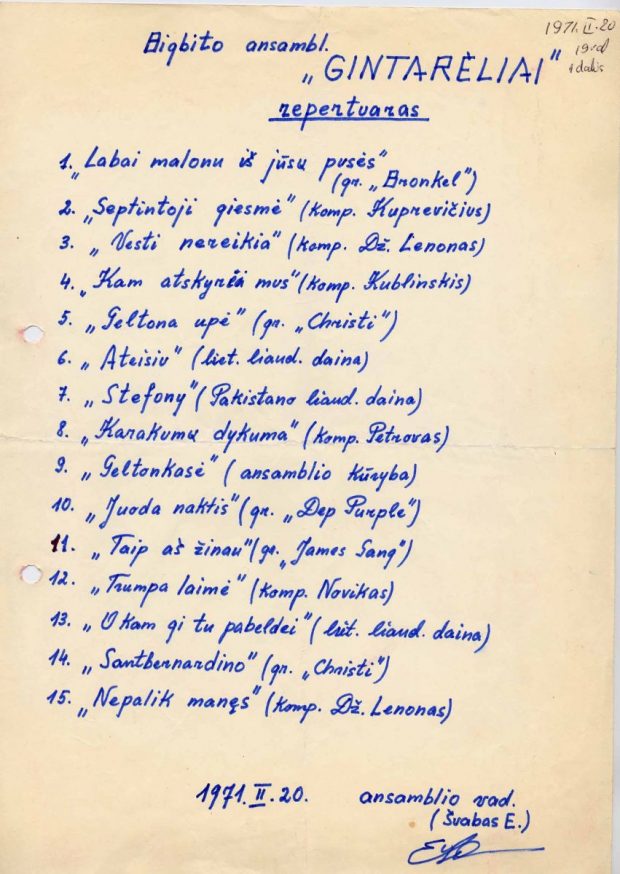 1971.II.20
19 val
1 dalis
Bigbito ansambl.
„GINTARĖLIAI"
repertuaras
1. „Labai malonu iš jūsų pusės"
(gr. „Bronkel")
2. „Septintoji giesmė" (komp. Kuprevičius)
3. „Vesti nereikia" (komp. Dž. Lenonas)
4. „Kam atskyrėė mus" (komp. Kublinskis)
5. „Geltona upė" (gr. „Christi")
6. „Ateisiu" (liet. liaud. daina)
7. „Stefony" (Pakistano liaud. daina)
8. „Karakumų dykuma" (komp. Petrovas)
9. „Geltonkasė" (ansamblio kūryba)
10. „Juoda naktis" (gr. „Dep Purple")
11. „Taip aš žinau" (gr. „James Sang")
12. „Trumpa laimė" (komp. Novikas)
13. „O kam gi tu pabeldei" (liet. liaud. daina)
14. „Santbernardino" (gr. „Christi")
15. „Nepalik manęs" (komp. Dž. Lenonas)
1971.II.20. ansamblio vad.
(Švabas E.)